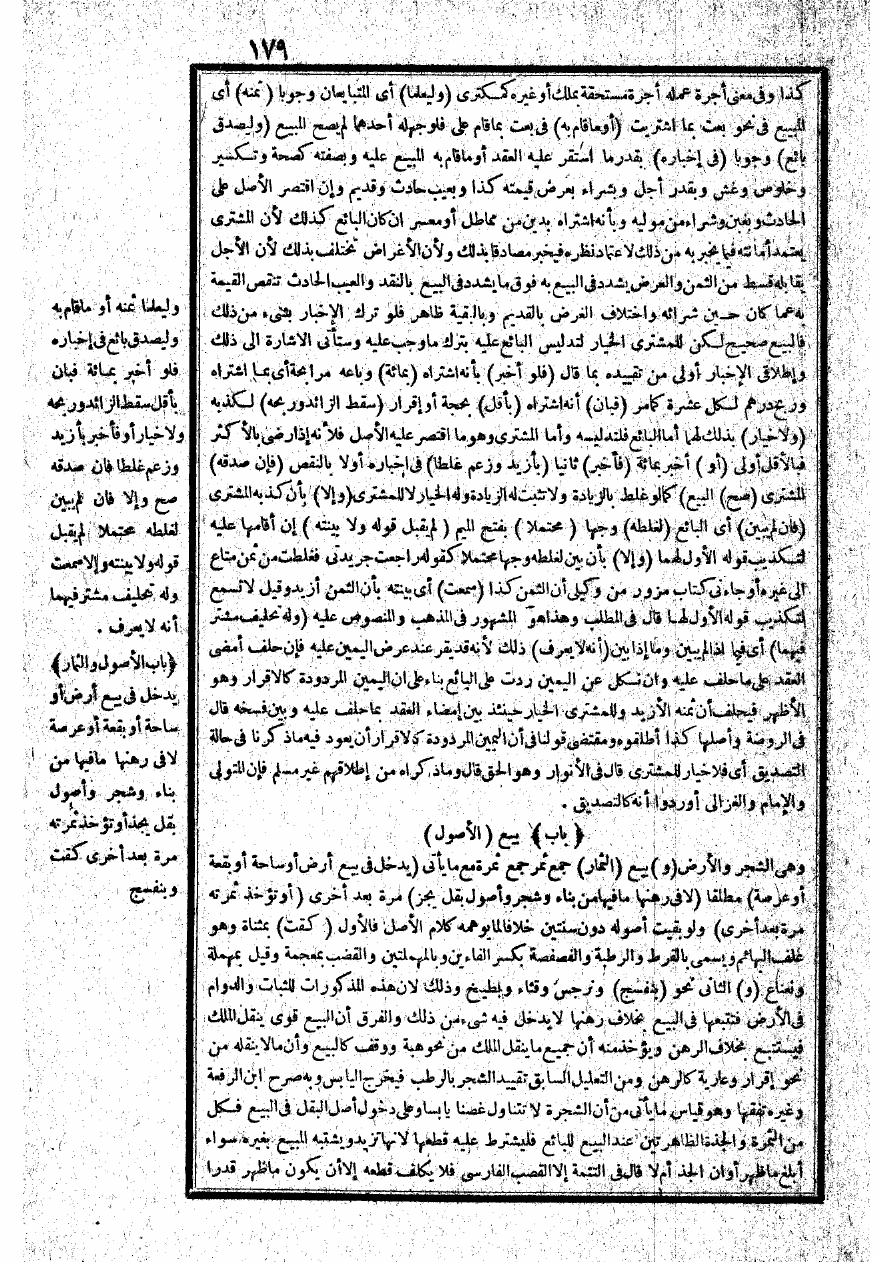 ١٧٩
كذا وفى معنى أجرة عمله أجرة مستحقة بملك أو غيره كمكترى (وليعلما) أى المتبايعان وجوبا (ثمنه) أى
المبيع فى نحو بعت بما اشتريت (أو ماقام به) فى بعت بماقام على فلو جهله أحدهما لم يصح البيع (وليصدق
بائع) وجوبا (فى إخباره) بقدر ما استقر عليه العقد أو ماقام به المبيع عليه وبصفته كصحة وتكسير
وخلوص وغش وبقدر أجل وبشراء بعرض قيمته كذا وبعيب حادث وقديم وإن اقتصر الأصل على
الحادث وبغبن وشراء من موليه وبأنه اشتراه بدين من مماطل أو معسر ان كان البائع كذلك لأن المشترى
يعتمد أمانته فيما يخبر به من ذلك لاعتماد نظره فيخبر مصادقا بذلك ولأن الأغراض تختلف بذلك لأن الأجل
يقابله قسط من الثمن والعرض يشدد فى البيع به فوق ما يشدد فى البيع بالنقد والعيب الحادث تنقص القيمة
به عما كان حين شرائه واختلاف الغرض بالقديم وبالبقية ظاهر فلو ترك الإخبار بشىء من ذلك
فالبيع صحيح لكن للمشترى الخيار لتدليس البائع عليه بترك ماوجب عليه وستأتى الاشارة الى ذلك
وإطلاقى الإخبار أولى من تقييده بما قال (فلو أخبر) بأنه اشتراه (بمائة) وباعه مرابحة أى بما اشتراه
وربح درهم لكل عشرة كمامر (فبان) أنه اشتراه (بأقل) بحجة أو إقرار (سقط الزائد وربحه) لكذبه
(ولاخيار) بذلك لهما أما البائع فلتدليسه وأما المشترى وهو ما اقتصر عليه الأصل فلأنه إذا رضى بالأكثر
فبالأقل أولى (أو) أخبر بمائة (فأخبر) ثانيا (بأزيد وزعم غلطا) فى إخباره أولا بالنقص (فإن صدقه)
المشترى (صح) البيع) كمالو غلط بالزيادة ولا تثبت له الزيادة وله الخيار لا للمشترى (وإلا) بأن كذبه المشترى
(فان لم يبين) أى البائع (لغلطه) وجها (محتملا) بفتح الميم (لم يقبل قوله ولا بينته) إن أقامها عليه
لتكذيب قوله الأول لهما (وإلا) بأن بين لغلطه وجها محتملا كقوله راجعت جريدتى فغلطت من ثمن متاع
الى غيره أو جاءنى كتاب مزور من وكيلى أن الثمن كذا (سمعت) أى بينته بأن الثمن أزيد وقيل لا تسمع
لتكذيب قوله الأول لها قال فى المطلب وهذا هو المشهور فى المذهب والمنصوص عليه (وله تحليف مشتر
فيهما) أى فيما اذا لم يبين وما إذا بين (أنه لا يعرف) ذلك لأنه قد يقر عند عرض اليمين عليه فإن حلف أمضى
العقد على ماحلف عليه وان نكل عن اليمين ردت على البائع بناء على ان اليمين المردودة كالاقرار وهو
الأظهر فيحلف أن ثمنه الأزيد وللمشترى الخيار حينئذ بين إمضاء العقد بما حلف عليه وبين فسخه قال
فى الروضة وأصلها كذا أطلقوه ومقتضى قولنا فى أن اليمين المردودة كالاقرار أن يعود فيه ما ذكرنا فى حالة
التصديق أى فلا خيار للمشترى قال فى الأنوار وهو الحق قال وماذكراه من إطلاقهم غير مسلم فإن المتولى
والإمام والغزالى أوردوا أنه كالتصديق .
﴿باب﴾ بيع (الأصول)
وهى الشجر والأرض (و) بيع (الثمار) جمع ثمر جمع ثمرة مع ما يأتى (يدخل فى بيع أرض أو ساحة أو بقعة
أو عرصة) مطلقا (لا فى رهنها مافيها من بناء وشجر وأصول بقل يجز) مرة بعد أخرى (أو تؤخذ ثمرته
مرة بعد أخرى) ولو بقيت أصوله دون سنتين خلافا لما يوهمه كلام الأصل فالأول (كقت) بمثناة وهو
علف البهائم ويسمى بالقرط والرطبة والفصفصة بكسر الفاءين وبالمهملتين والقضب بمعجمة وقيل بمهملة
ونعناع (و) الثانى نحو (بنفسج) ونرجس وقثاء وبطيخ وذلك لان هذه المذكورات للثبات والدوام
فى الأرض فتتبعها فى البيع بخلاف رهنها لا يدخل فيه شىء من ذلك والفرق أن البيع قوى ينقل الملك
فيستتبع بخلاف الرهن ويؤخذ منه أن جميع ماينقل الملك من نحو هبة ووقف كالبيع وأن مالاينقله من
نحو إقرار وعارية كالرهن ومن التعليل السابق تقييد الشجر بالرطب فيخرج اليابس وبه صرح ابن الرفعة
وغيره تفقها وهو قياس مايأتى من أن الشجرة لا تتناول غصنا يابسا وعلى دخول أصل البقل فى البيع فكل
من الثمرة والجذة الظاهرتين عند البيع للبائع فليشترط عليه قطعها لانها تزيد ويشتبه المبيع بغيره سواء
أبلغ ماظهر أوان الجذ أم لا قال فى التتمة إلا القصب الفارسى فلا يكلف قطعه إلا أن يكون ماظهر قدرا
وليعلما ثمنه أو ماقام به
وليصدق بائع فى إخباره
فلو أخبر بمائة فبان
بأقل سقط الزائد وربحه
ولاخيار أو فأخبر بأزيد
وزعم غلطا فان صدقه
صح وإلا فان لم يبين
لغلطه محتملا لم يقبل
قوله ولا بينته وإلا سمعت
وله تحليف مشتر فيهما
أنه لا يعرف .
﴿باب الأصول والثمار﴾
يدخل فى بيع أرض أو
ساحة أو بقعة أو عرصة
لا فى رهنها مافيها من
بناء وشجر وأصول
بقل يجذ أو تؤخذ ثمرته
مرة بعد أخرى كقت
وبنفسج